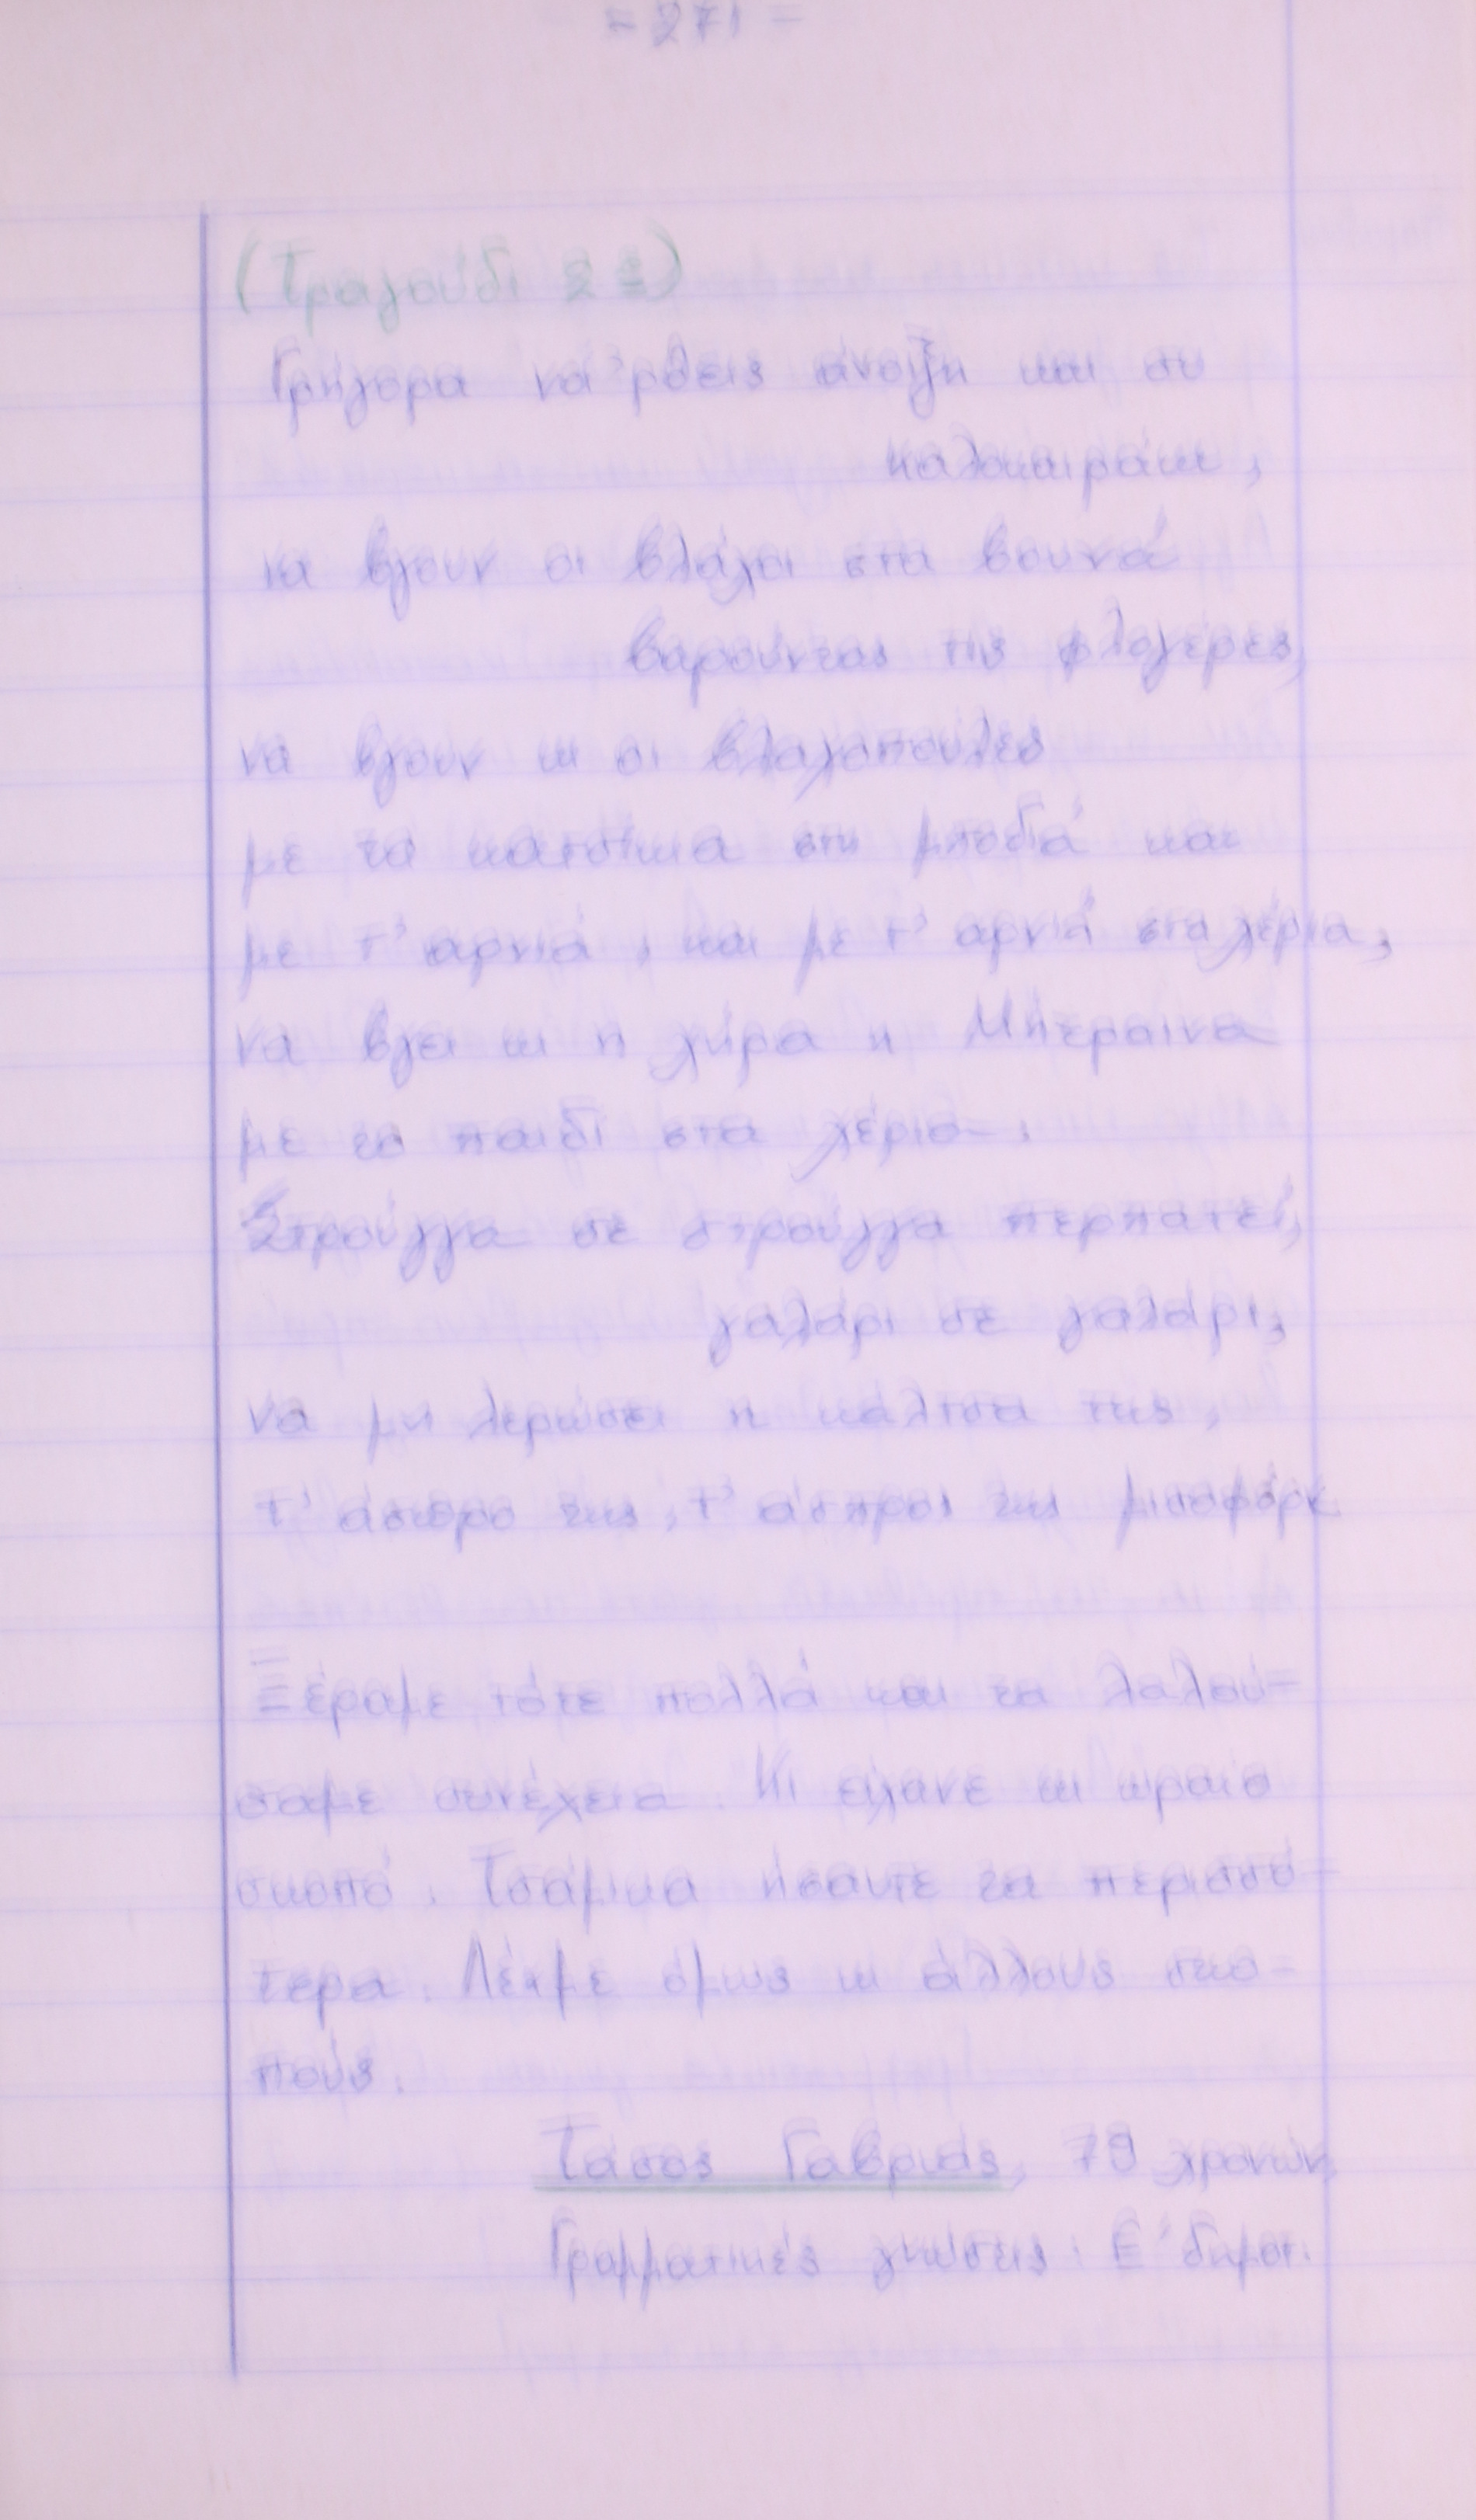 = 271 =
(Τραγούδι 2 )
Γρήγορα να 'ρθεις άνοιξη και συ
καλοκαιράκι,
να βγουν οι βλάχοι στα βουνά
βαρούντας τις φλογέρες,
να βγουν κι οι βλαχοπούλες
με τα κατσίκια στη μποδιά και
με τ' αρνιά, και με τ' αρνιά στα χέρια,
να βγει κι η χήρα η Μήτραινα
με το παιδί στα χέρια.
Στρούγγα σε στρούγγα περπατεί,
γαλάρι σε γαλάρι,
να μη λερώσει η κάλτσα της,
τ' άσπρο της, τ' άσπρο της μισοφόρι.
Ξέραμε τότε πολλά και τα λαλού=
σαμε συνέχεια. Κι είχανε κι ωραίο
σκοπό. Τσάμικα ήσαντε τα περισσό=
τερα. Λέαμε όμως κι άλλους σκο=
πούς.
Τάσος Γαβριάς, 79 χρονών,
Γραμματικές γνώσεις: Ε' δημοτ.